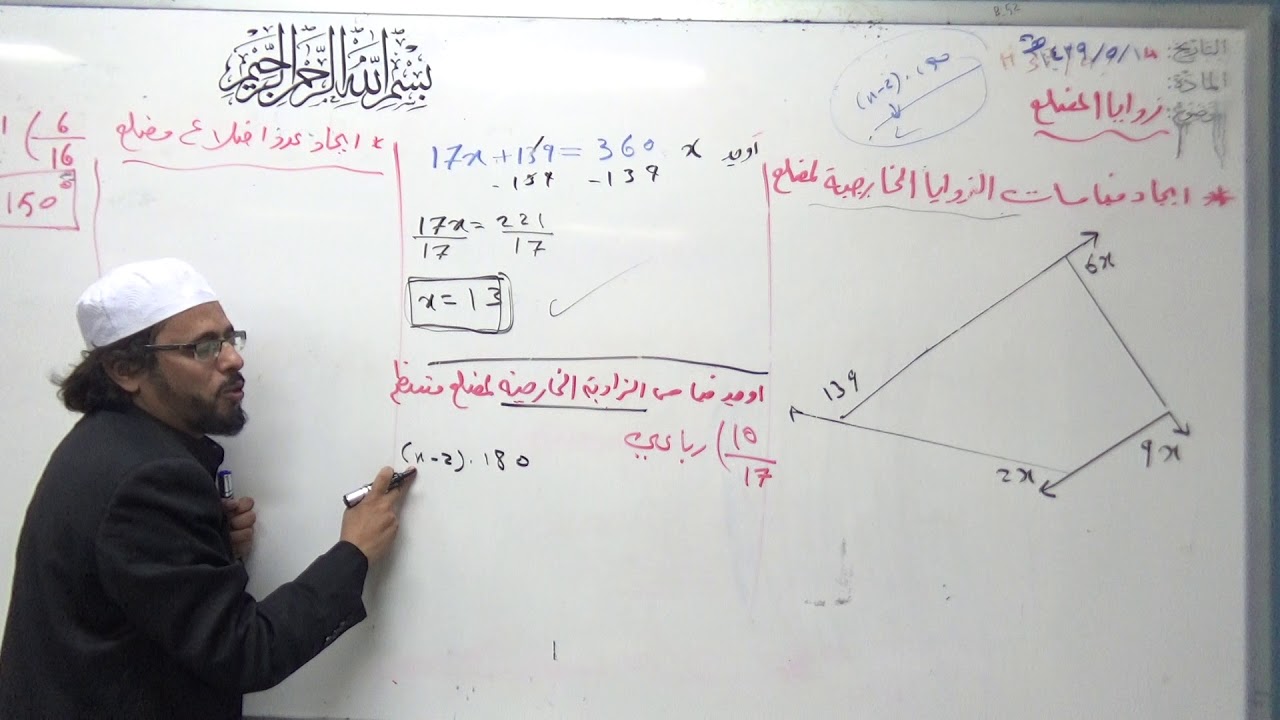 بسم الله الرحمن الرحيم
التاريخ:
المادة:
زوايا المضلع
(n-2).180
* ايجاد قياسات الزوايا الخارجية لمضلع
6x
139
9x
2x
أوجد x
17x + 139 = 360
-139 -139
17x = 221
17 17
x = 13
اوجد قياس الزاوية الخارجية لمضلع منتظم
10/17) رباعي
(n-2).180
* ايجاد عدد اضلاع مضلع
6/16)
150°